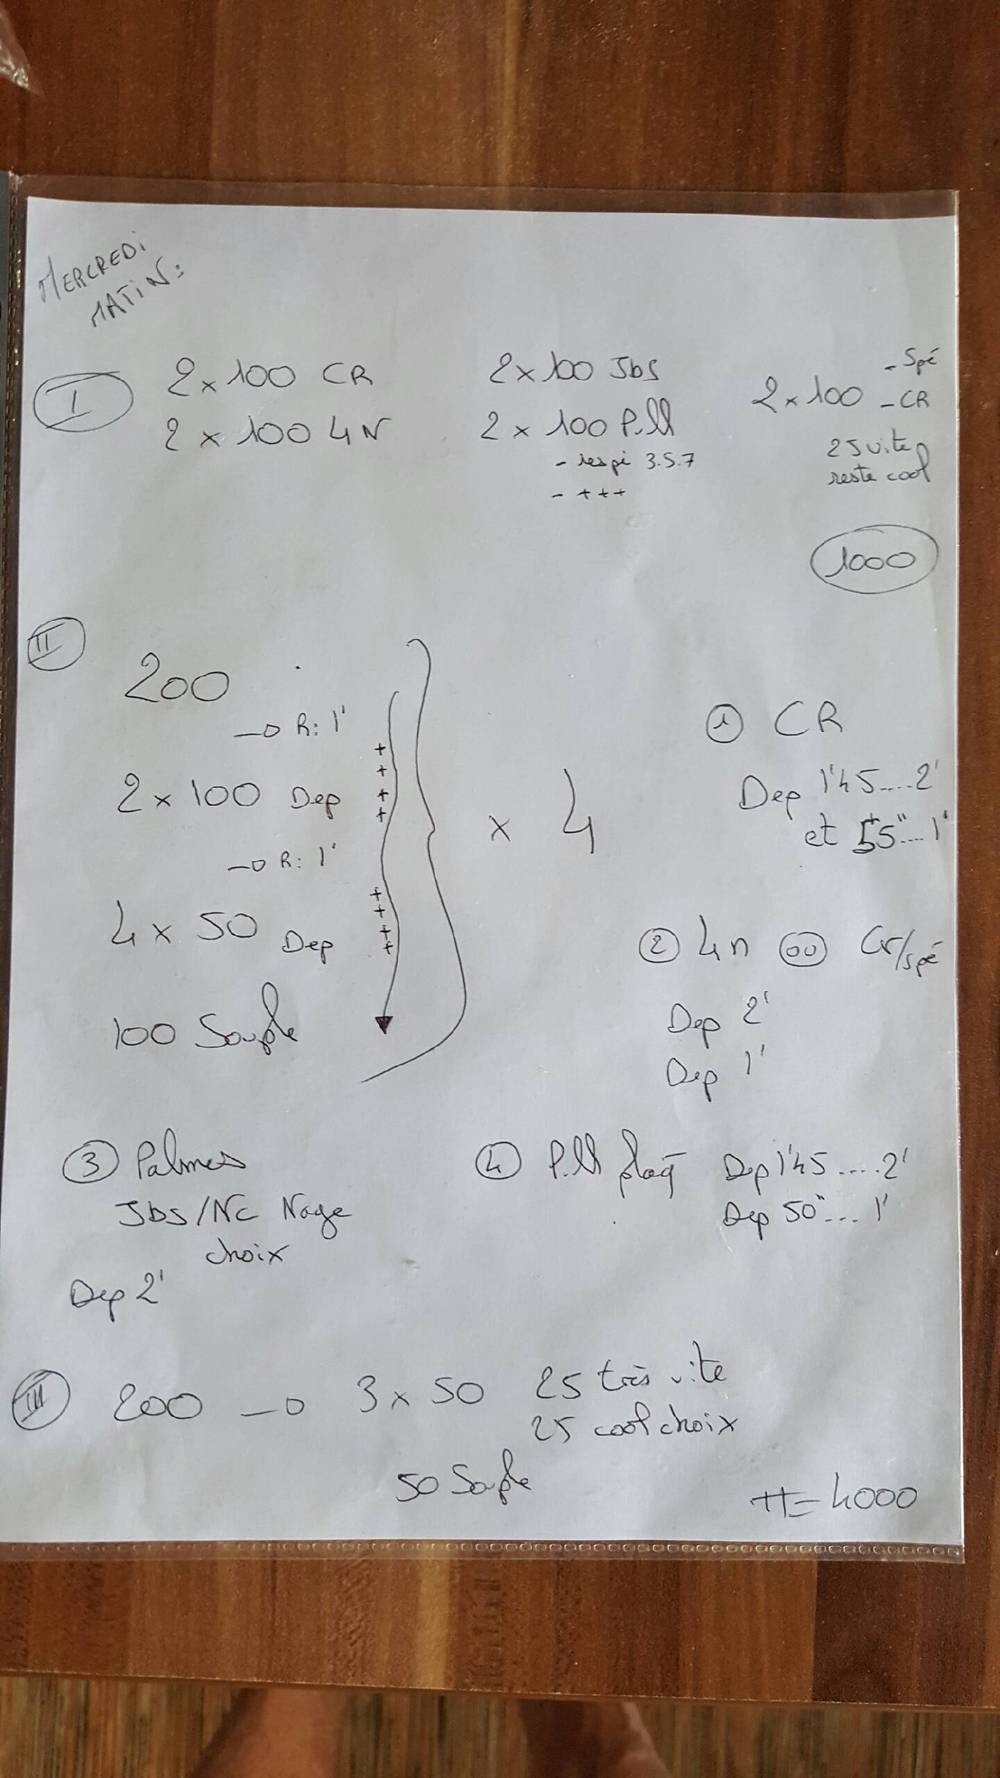 MERCREDI
MATIN:
I
2 x 100 CR
2 x 100 4 N
2 x 100 Jbs
2 x 100 Pull
- respi 3.5.7
- +++
2 x 100
- Spé
- CR
25 vite
reste cool
1000
II
200
→ R: 1'
2 x 100 Dep
→ R: 1'
4 x 50 Dep
100 Souple
++++
++++
x 4
1 CR
Dep 1'45....2'
et 55"...1'
2 4n ou Cr/spé
Dep 2'
Dep 1'
3 Palmes
Jbs/NC Nage
choix
Dep 2'
4 Pull plaq Dep 1'45....2'
Dep 50"... 1'
III
200 → 3 x 50 25 très vite
25 cool choix
50 Souple
TT = 4000